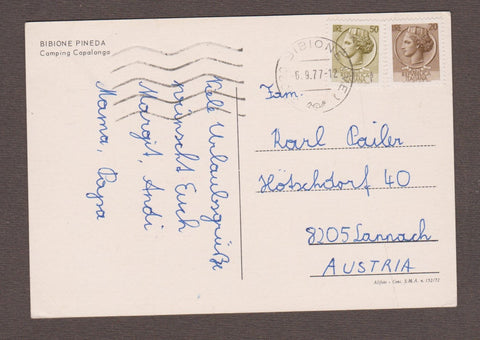 BIBIONE PINEDA
Camping Capalonga
Viele Urlaubsgrüße
wünscht Euch
Margit, Andi
Mama, Papa
BIBIONE
6.9.77-12
50
20
Fam.
Karl Pailer
Hötschdorf 40
8205 Lannach
AUSTRIA